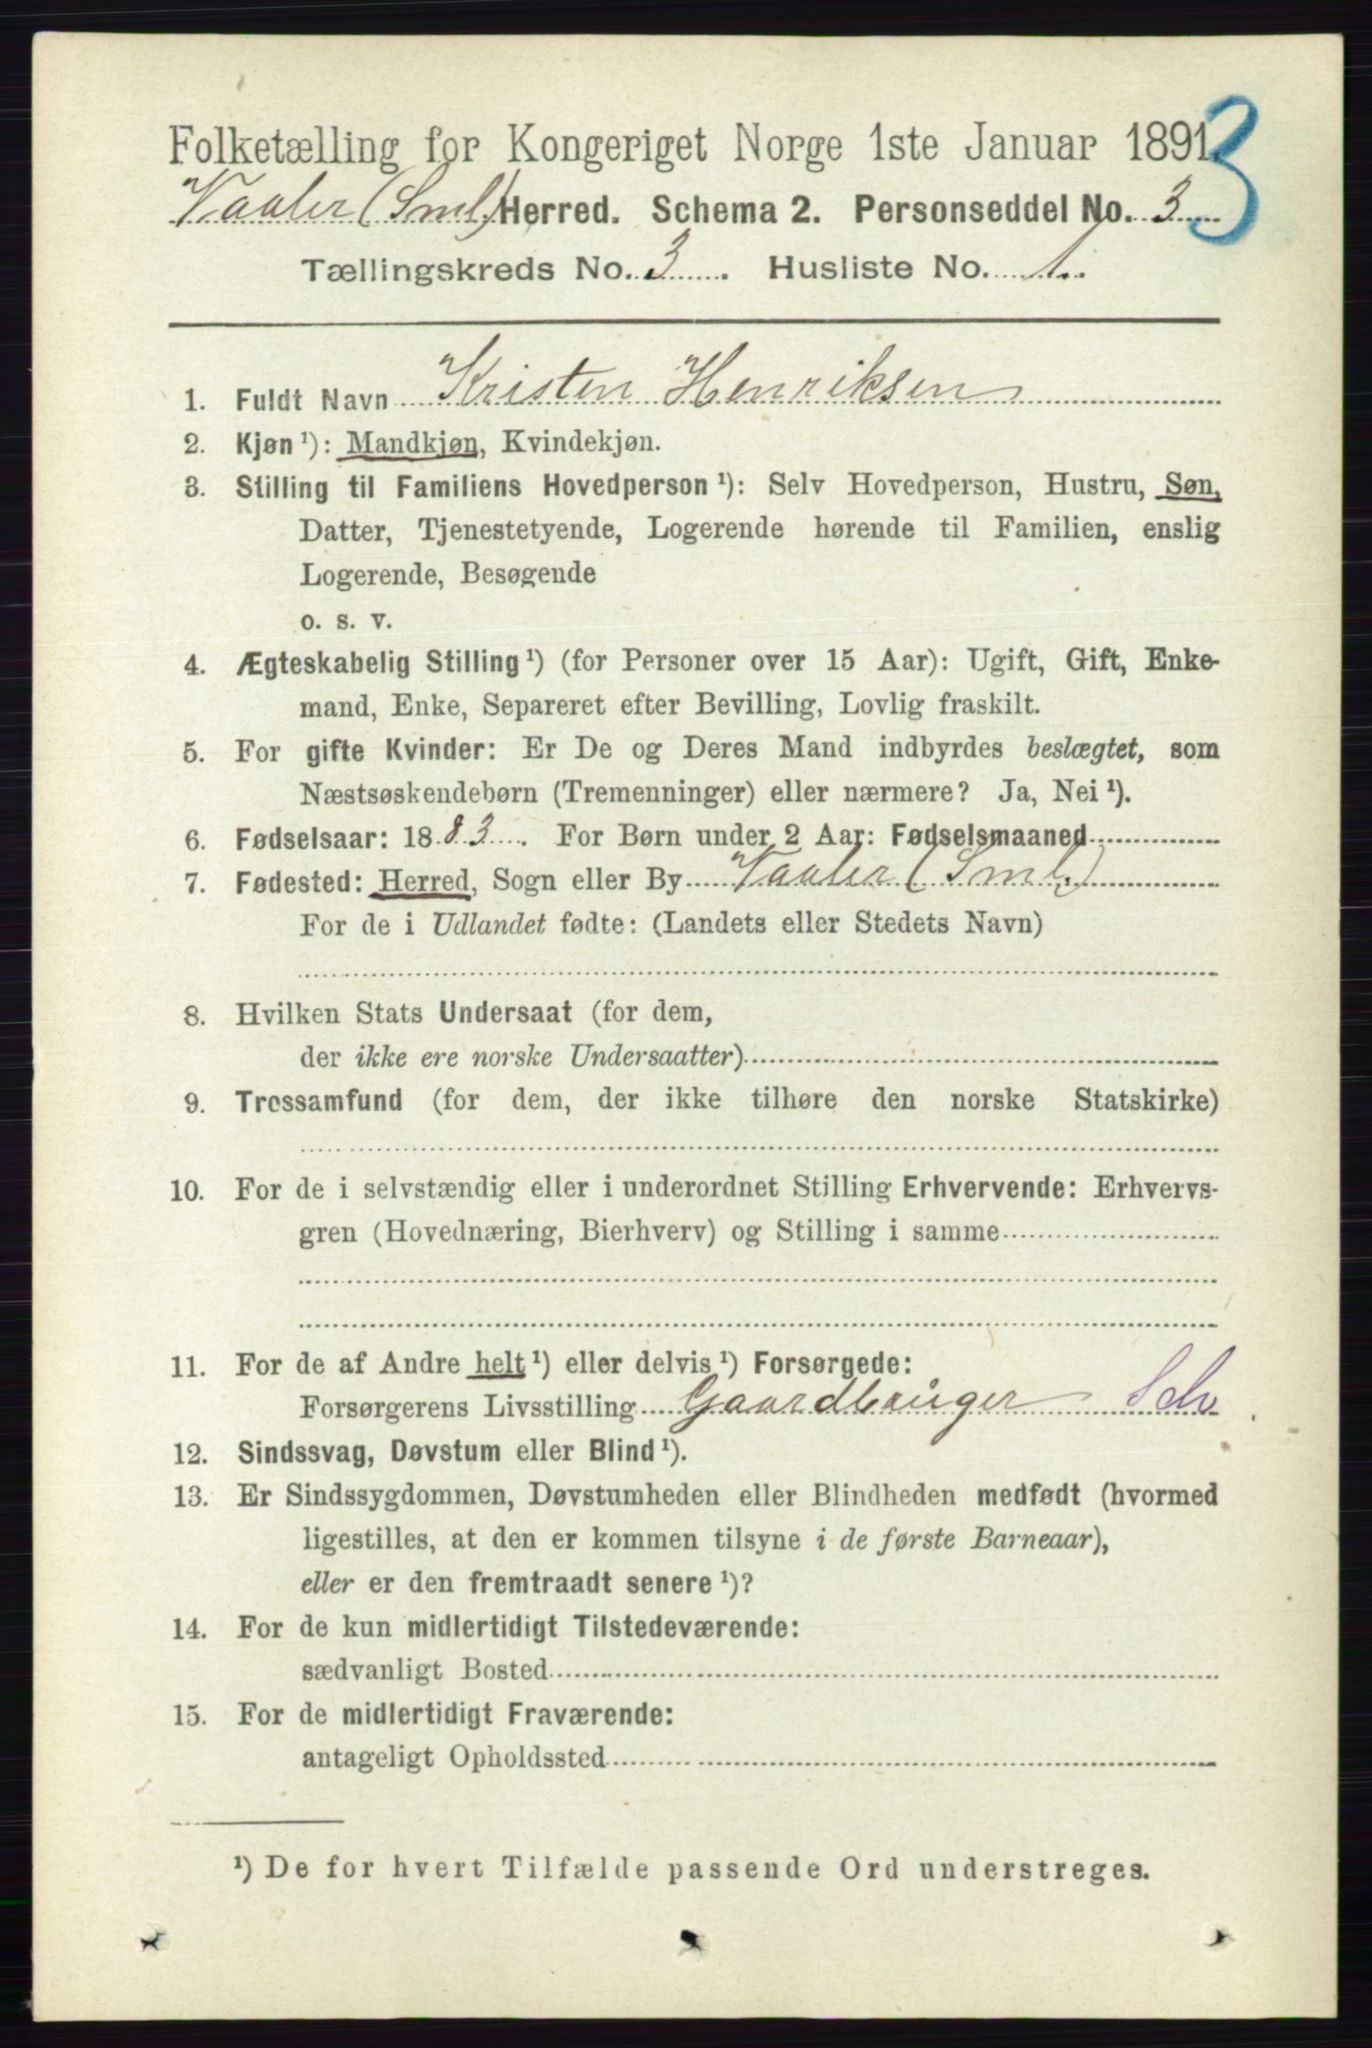 Folketælling for Kongeriget Norge 1ste Januar 1891.
3
Vaaler (Sml.) Herred. Schema 2. Personseddel No. 3
Tællingskreds No. 3. Husliste No. 1.
1. Fuldt Navn Kristen Henriksen
2. Kjøn ¹): Mandkjøn, Kvindekjøn.
3. Stilling til Familiens Hovedperson ¹): Selv Hovedperson, Hustru, Søn,
Datter, Tjenestetyende, Logerende hørende til Familien, enslig
Logerende, Besøgende
o. s. v.
4. Ægteskabelig Stilling ¹) (for Personer over 15 Aar): Ugift, Gift, Enke-
mand, Enke, Separeret efter Bevilling, Lovlig fraskilt.
5. For gifte Kvinder: Er De og Deres Mand indbyrdes beslægtet, som
Næstsøskendebørn (Tremenninger) eller nærmere? Ja, Nei ¹).
6. Fødselsaar: 1883. For Børn under 2 Aar: Fødselsmaaned
7. Fødested: Herred, Sogn eller By Vaaler (Sml.)
For de i Udlandet fødte: (Landets eller Stedets Navn)
8. Hvilken Stats Undersaat (for dem,
der ikke ere norske Undersaatter)
9. Trossamfund (for dem, der ikke tilhøre den norske Statskirke)
10. For de i selvstændig eller i underordnet Stilling Erhvervende: Erhvervs-
gren (Hovednæring, Bierhverv) og Stilling i samme
11. For de af Andre helt ¹) eller delvis ¹) Forsørgede:
Forsørgerens Livsstilling Gaardbruger Selv
12. Sindssvag, Døvstum eller Blind ¹).
13. Er Sindssygdommen, Døvstumheden eller Blindheden medfødt (hvormed
ligestilles, at den er kommen tilsyne i de første Barneaar),
eller er den fremtraadt senere ¹)?
14. For de kun midlertidigt Tilstedeværende:
sædvanligt Bosted
15. For de midlertidigt Fraværende:
antageligt Opholdssted
¹) De for hvert Tilfælde passende Ord understreges.